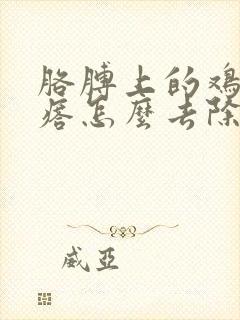 胳膊上的鸡
痞怎麼去除
威亞